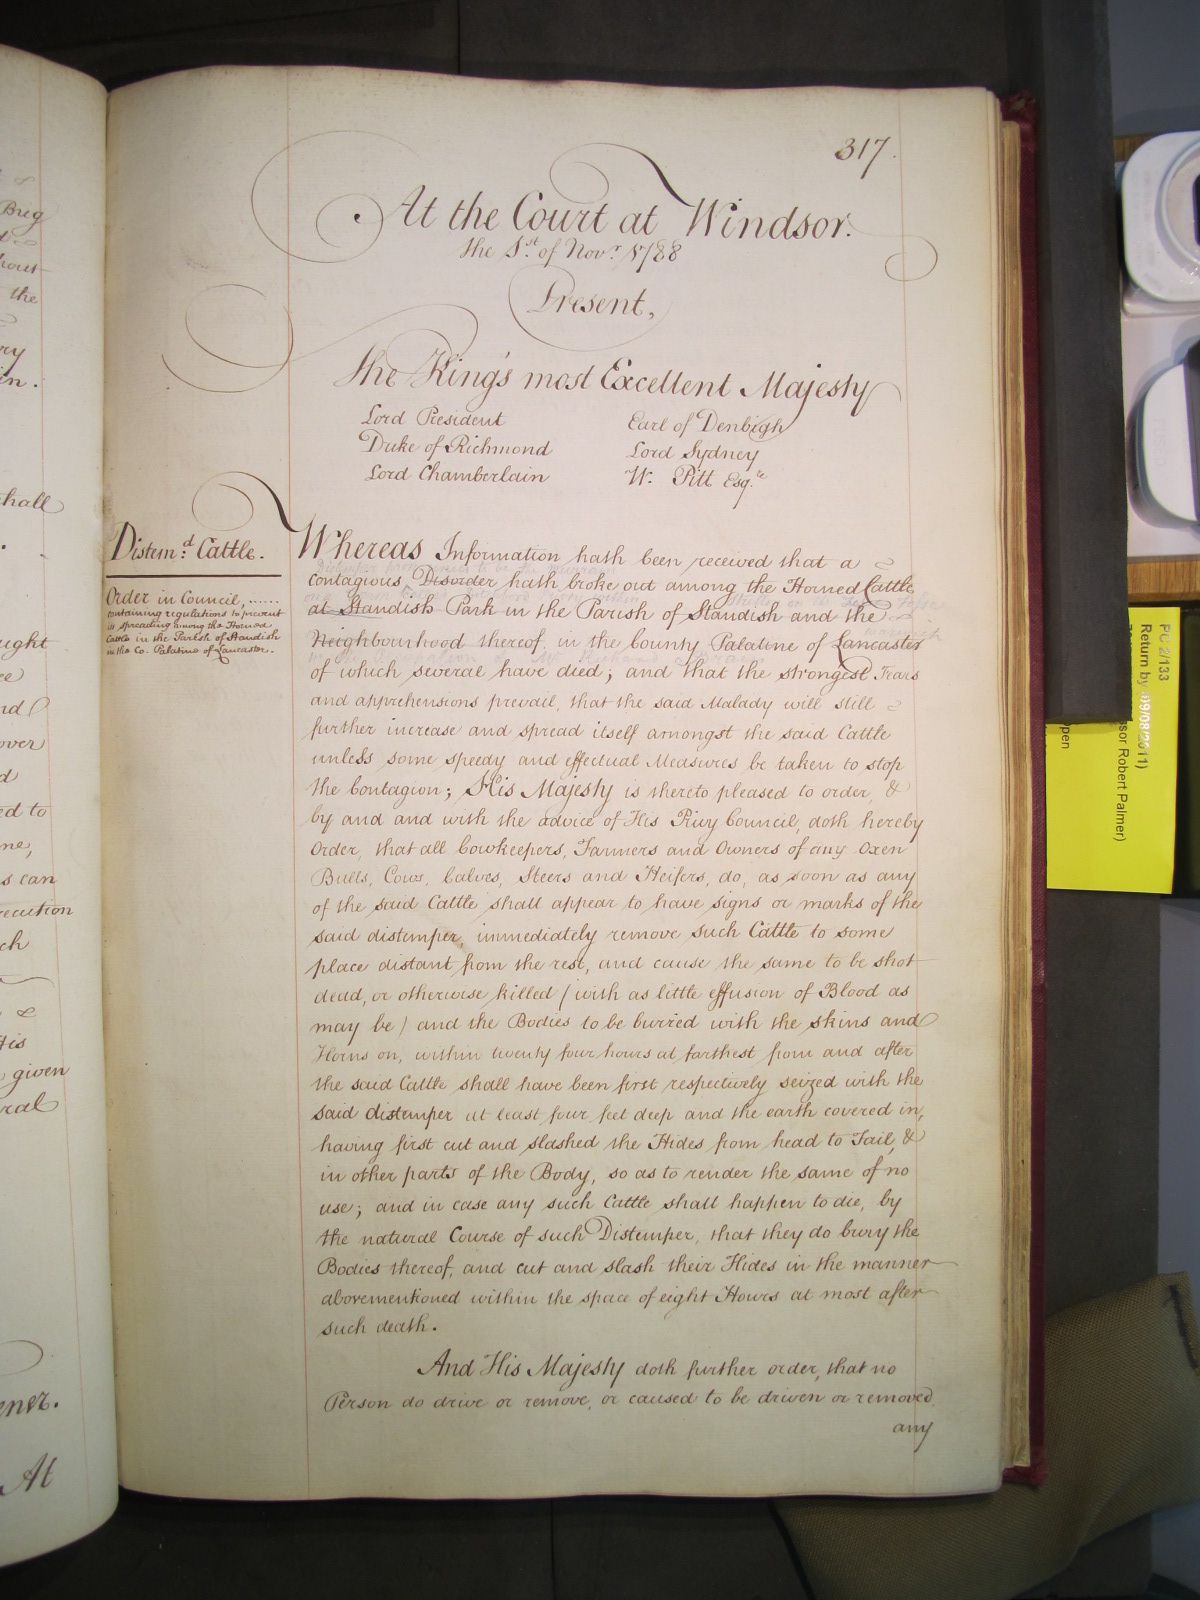 317.
At the Court at Windsor.
the 1st. of Novr. 1788
Present,
The King's most Excellent Majesty
Lord President Earl of Denbigh
Duke of Richmond Lord Sydney
Lord Chamberlain W. Pitt Esqre
Distemd. Cattle.
Order in Council, ......
containing regulations to prevent
its spreading among the Horned
Cattle in the Parish of Standish
in the Co. Palatine of Lancaster.
Whereas Information hath been received that a
contagious Disorder hath broke out among the Horned Cattle
at Standish Park in the Parish of Standish and the
Neighbourhood thereof, in the County Palatine of Lancaster
of which several have died; and that the strongest Fears
and apprehensions prevail, that the said Malady will still
further increase and spread itself amongst the said Cattle
unless some speedy and effectual Measures be taken to stop
the Contagion; His Majesty is thereto pleased to order, &
by and and with the advice of His Privy Council, doth hereby
Order, that all Cowkeepers, Farmers and Owners of any Oxen
Bulls, Cows, Calves, Steers and Heifers, do, as soon as any
of the said Cattle shall appear to have signs or marks of the
said distemper, immediately remove such Cattle to some
place distant from the rest, and cause the same to be shot
dead, or otherwise killed (with as little effusion of Blood as
may be) and the Bodies to be burried with the skins and
Horns on, within twenty four hours at farthest from and after
the said Cattle shall have been first respectively seized with the
said distemper at least four feet deep and the earth covered in,
having first cut and slashed the Hides from head to Tail, &
in other parts of the Body, so as to render the same of no
use; and in case any such Cattle shall happen to die, by
the natural Course of such Distemper, that they do bury the
Bodies thereof, and cut and slash their Hides in the manner
abovementioned within the space of eight Hours at most after
such death.
And His Majesty doth further order, that no
Person do drive or remove, or caused to be driven or removed
any
hall
ught
nd
over
ed to
me,
s can
ecution
ch
His
given
ral
ener.
At
PC 2/133
Return by 09/08/2011)
ssor Robert Palmer)
pen